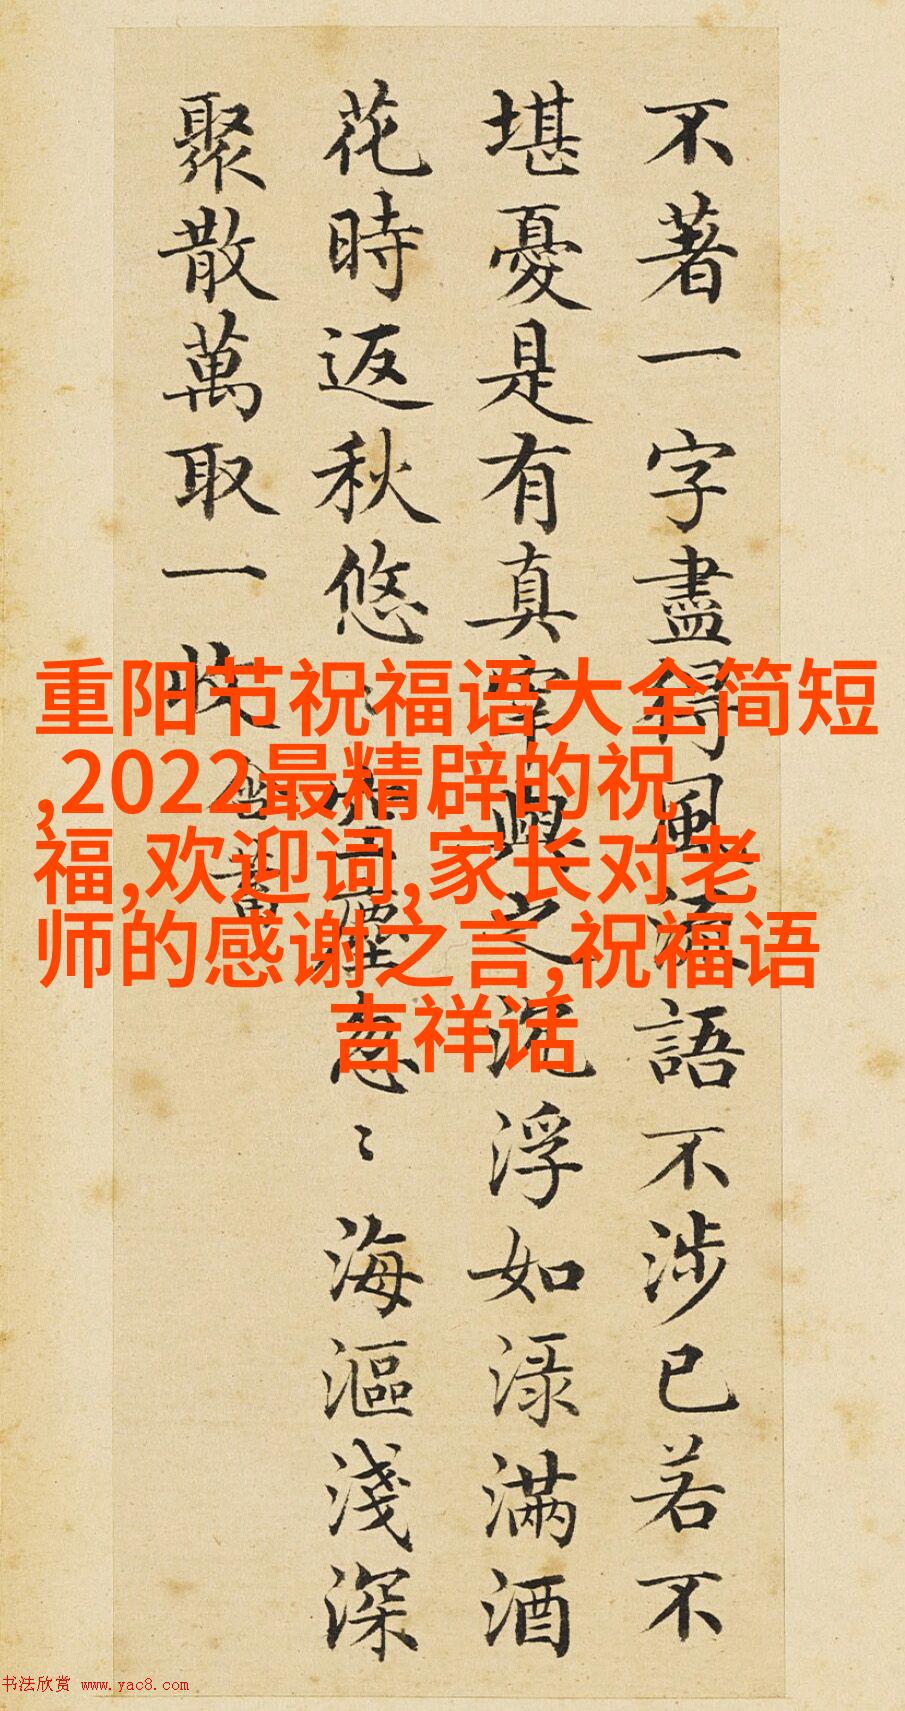 重阳节祝福语大全简短
,2022最精辟的祝
福,欢迎词,家长对老
师的感谢之言,祝福语
吉祥话
不著一字盡得風流語不涉已若不
堪憂是有真宰與之沉浮如渌滿酒
花時返秋悠〻空塵忽〻海漚淺深
聚散萬取一收
书法欣赏 www.yac8.com